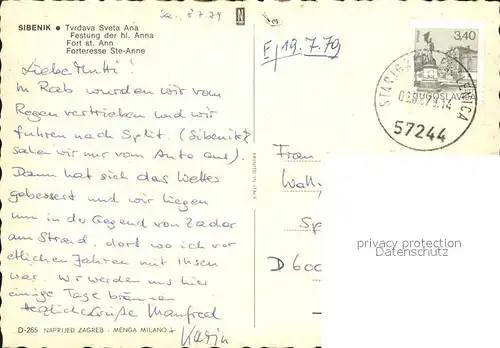 Sa., 8.7.79
SIBENIK ● Tvrdava Sveta Ana
Festung der hl. Anna
Fort st. Ann
Forteresse Ste-Anne
E/19.7.79
N
3,40
JUGOSLAVIJA
57244
Liebe Mutti!
In Rab wurden wir vom
Regen vertrieben und wir
fuhren nach Split. (Sibenik
sahen wir nur vom Auto aus).
Dann hat sich das Wetter
gebessert und wir liegen
nun in der Gegend von Zadar
am Strand, dort wo ich vor
etlichen Jahren mit Ihnen
war. Wir werden uns hier
einige Tage bräunen
Herzliche Grüße Manfred
+
Karin
PRINTED IN ITALY
Frau
Wall
Sp
D 600
privacy protection
Datenschutz
D-265 NAPRIJED ZAGREB - MENGA MILANO